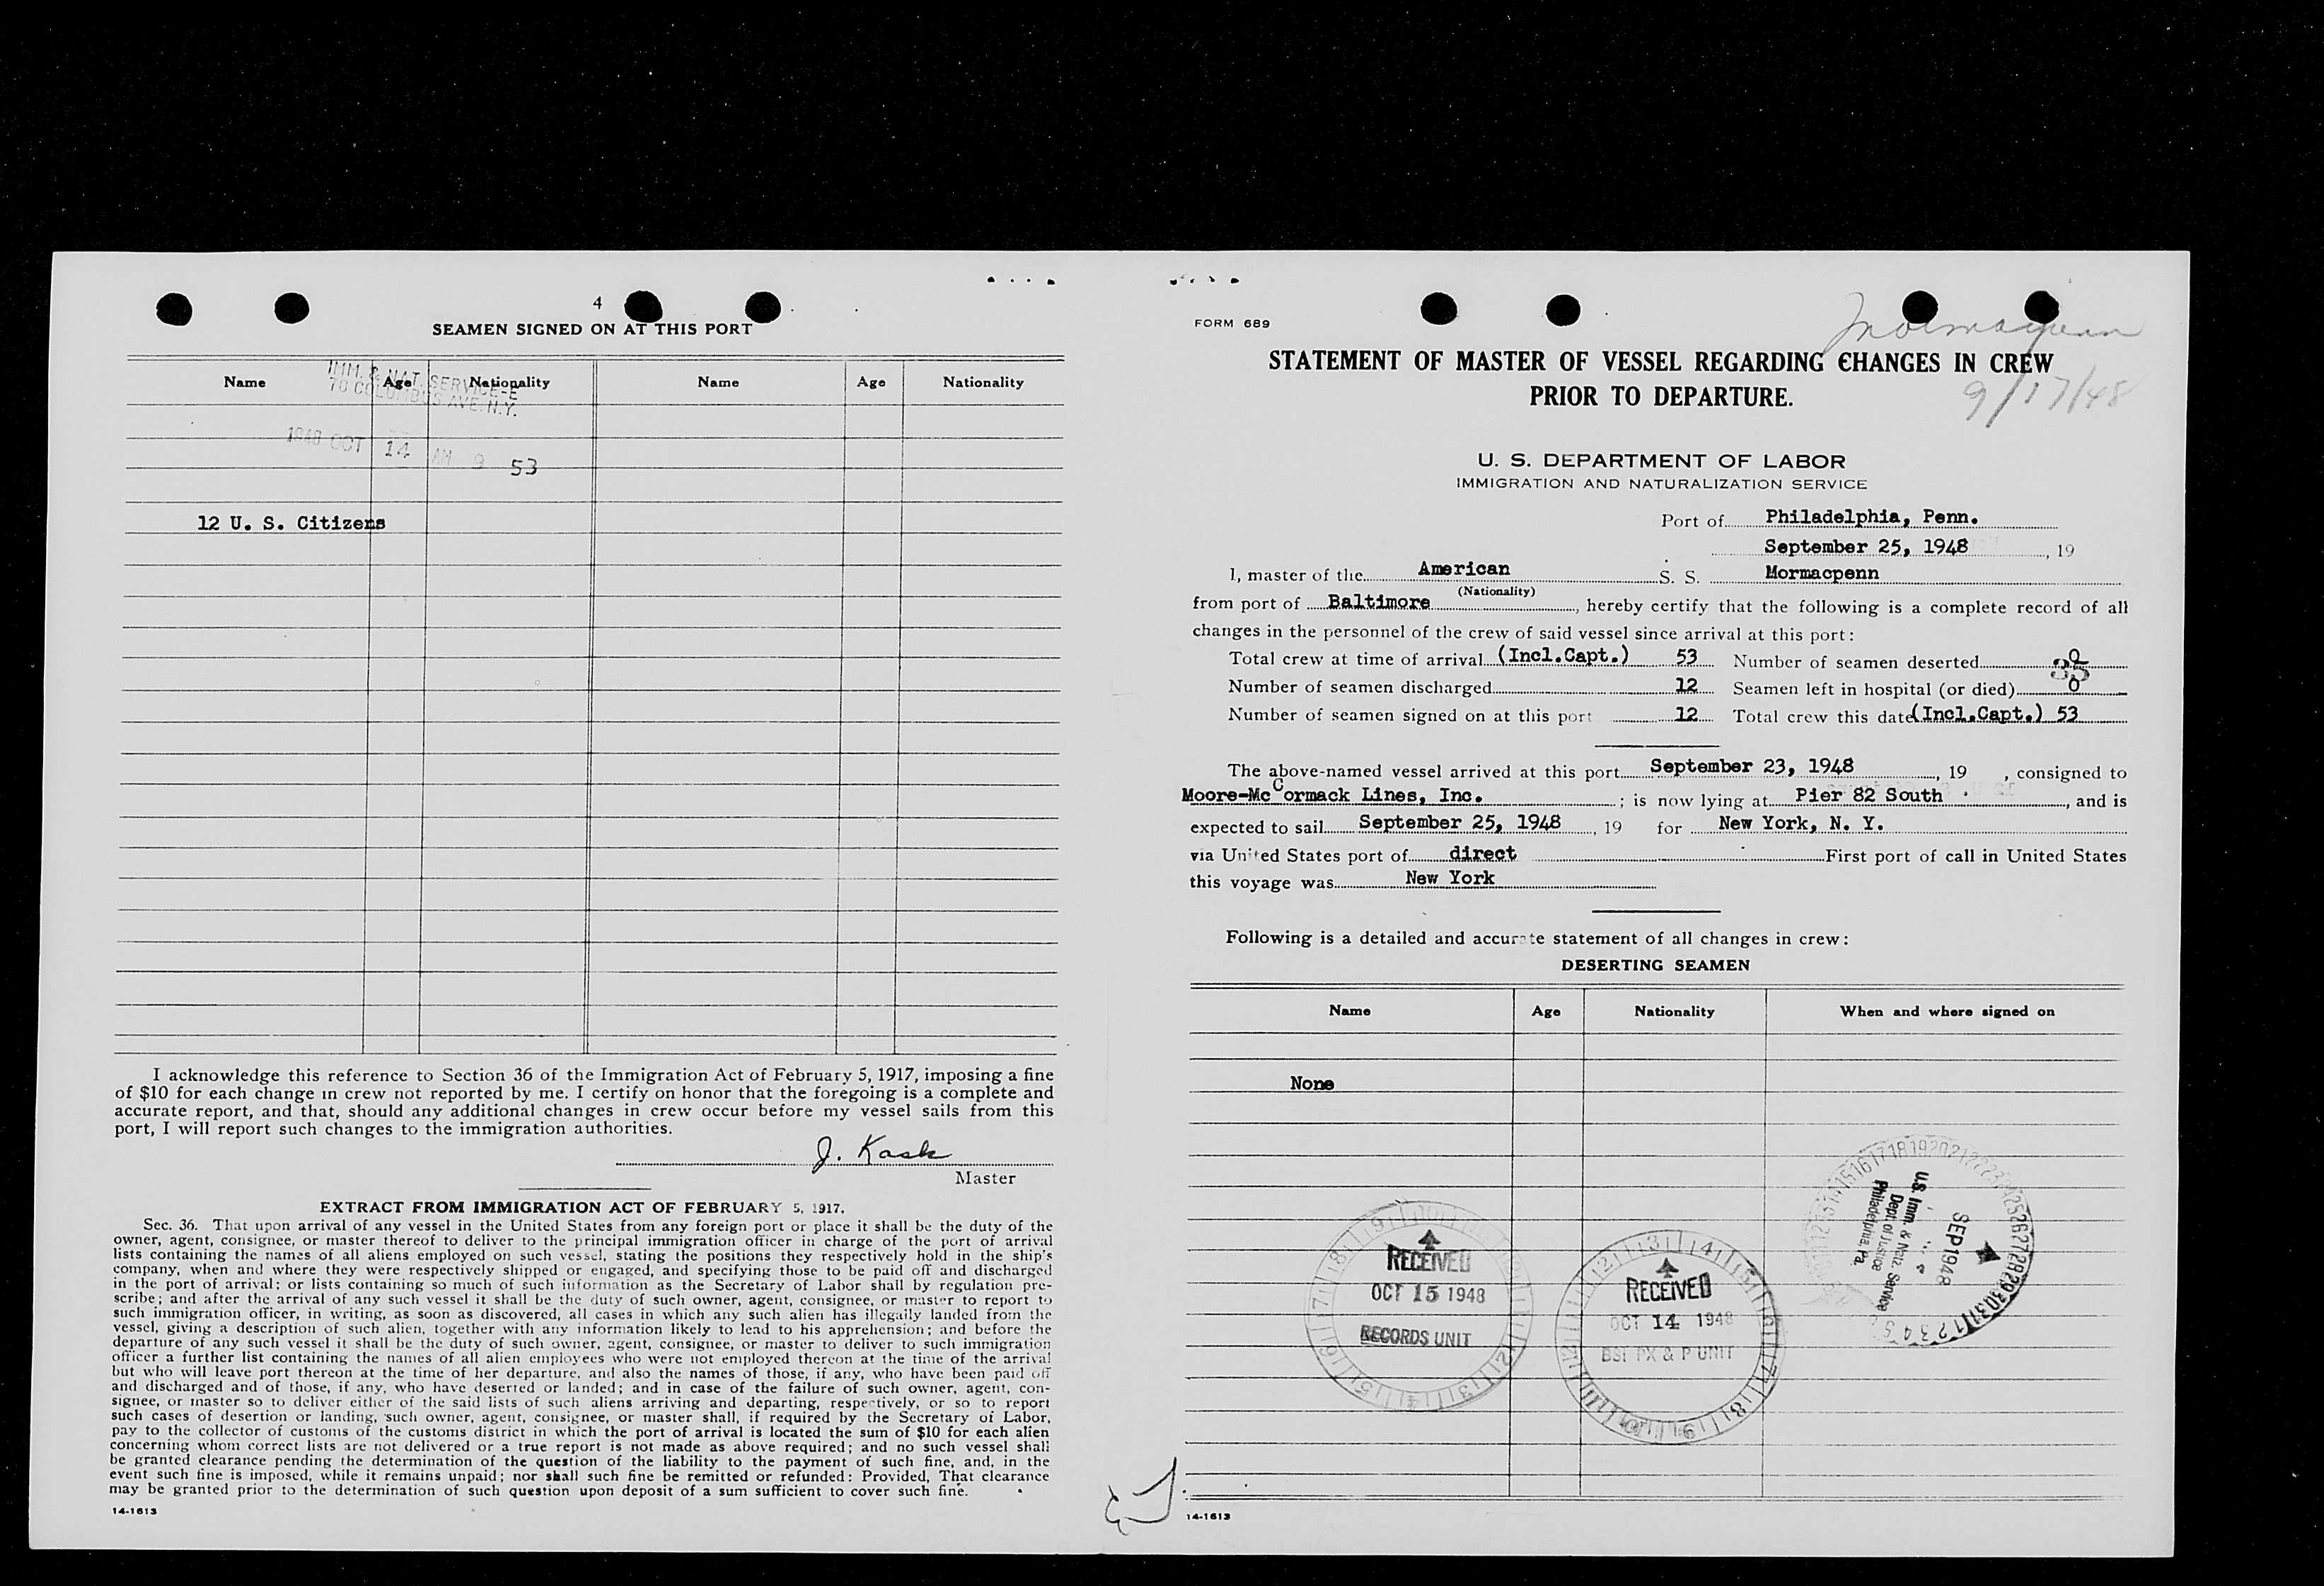 4
SEAMEN SIGNED ON AT THIS PORT
Name Age Nationality Name Age Nationality
IMM. & NAT. SERVICE-E
70 COLUMBUS AVE. N.Y.
1948 OCT 14 AM 9 53
12 U. S. Citizens
I acknowledge this reference to Section 36 of the Immigration Act of February 5, 1917, imposing a fine
of $10 for each change in crew not reported by me. I certify on honor that the foregoing is a complete and
accurate report, and that, should any additional changes in crew occur before my vessel sails from this
port, I will report such changes to the immigration authorities.
J. Kask
Master
EXTRACT FROM IMMIGRATION ACT OF FEBRUARY 5, 1917.
Sec. 36. That upon arrival of any vessel in the United States from any foreign port or place it shall be the duty of the
owner, agent, consignee, or master thereof to deliver to the principal immigration officer in charge of the port of arrival
lists containing the names of all aliens employed on such vessel, stating the positions they respectively hold in the ship's
company, when and where they were respectively shipped or engaged, and specifying those to be paid off and discharged
in the port of arrival; or lists containing so much of such information as the Secretary of Labor shall by regulation pre-
scribe; and after the arrival of any such vessel it shall be the duty of such owner, agent, consignee, or master to report to
such immigration officer, in writing, as soon as discovered, all cases in which any such alien has illegally landed from the
vessel, giving a description of such alien, together with any information likely to lead to his apprehension; and before the
departure of any such vessel it shall be the duty of such owner, agent, consignee, or master to deliver to such immigration
officer a further list containing the names of all alien employees who were not employed thereon at the time of the arrival
but who will leave port thereon at the time of her departure, and also the names of those, if any, who have been paid off
and discharged and of those, if any, who have deserted or landed; and in case of the failure of such owner, agent, con-
signee, or master so to deliver either of the said lists of such aliens arriving and departing, respectively, or so to report
such cases of desertion or landing, such owner, agent, consignee, or master shall, if required by the Secretary of Labor,
pay to the collector of customs of the customs district in which the port of arrival is located the sum of $10 for each alien
concerning whom correct lists are not delivered or a true report is not made as above required; and no such vessel shall
be granted clearance pending the determination of the question of the liability to the payment of such fine, and, in the
event such fine is imposed, while it remains unpaid; nor shall such fine be remitted or refunded: Provided, That clearance
may be granted prior to the determination of such question upon deposit of a sum sufficient to cover such fine.
14-1613
FORM 689
Mormacpenn
9/17/48
STATEMENT OF MASTER OF VESSEL REGARDING CHANGES IN CREW
PRIOR TO DEPARTURE.
U. S. DEPARTMENT OF LABOR
IMMIGRATION AND NATURALIZATION SERVICE
Port of Philadelphia, Penn.
September 25, 1948, 19
I, master of the American S. S. Mormacpenn
(Nationality)
from port of Baltimore, hereby certify that the following is a complete record of all
changes in the personnel of the crew of said vessel since arrival at this port:
Total crew at time of arrival (Incl.Capt.) 53 Number of seamen deserted 0
35
Number of seamen discharged 12 Seamen left in hospital (or died) 0
Number of seamen signed on at this port 12 Total crew this date (Incl.Capt.) 53
The above-named vessel arrived at this port September 23, 1948, 19 , consigned to
Moore-McCormack Lines, Inc. ; is now lying at Pier 82 South, and is
expected to sail September 25, 1948, 19 for New York, N. Y.
via United States port of direct First port of call in United States
this voyage was New York
Following is a detailed and accurate statement of all changes in crew:
DESERTING SEAMEN
Name Age Nationality When and where signed on
None
U.S. Imm. & Natz. Service
Dept of Justice
Philadelphia, Pa.
SEP 1948
RECEIVED
OCT 15 1948
RECORDS UNIT
RECEIVED
OCT 14 1948
BSI PX & P UNIT
14-1613